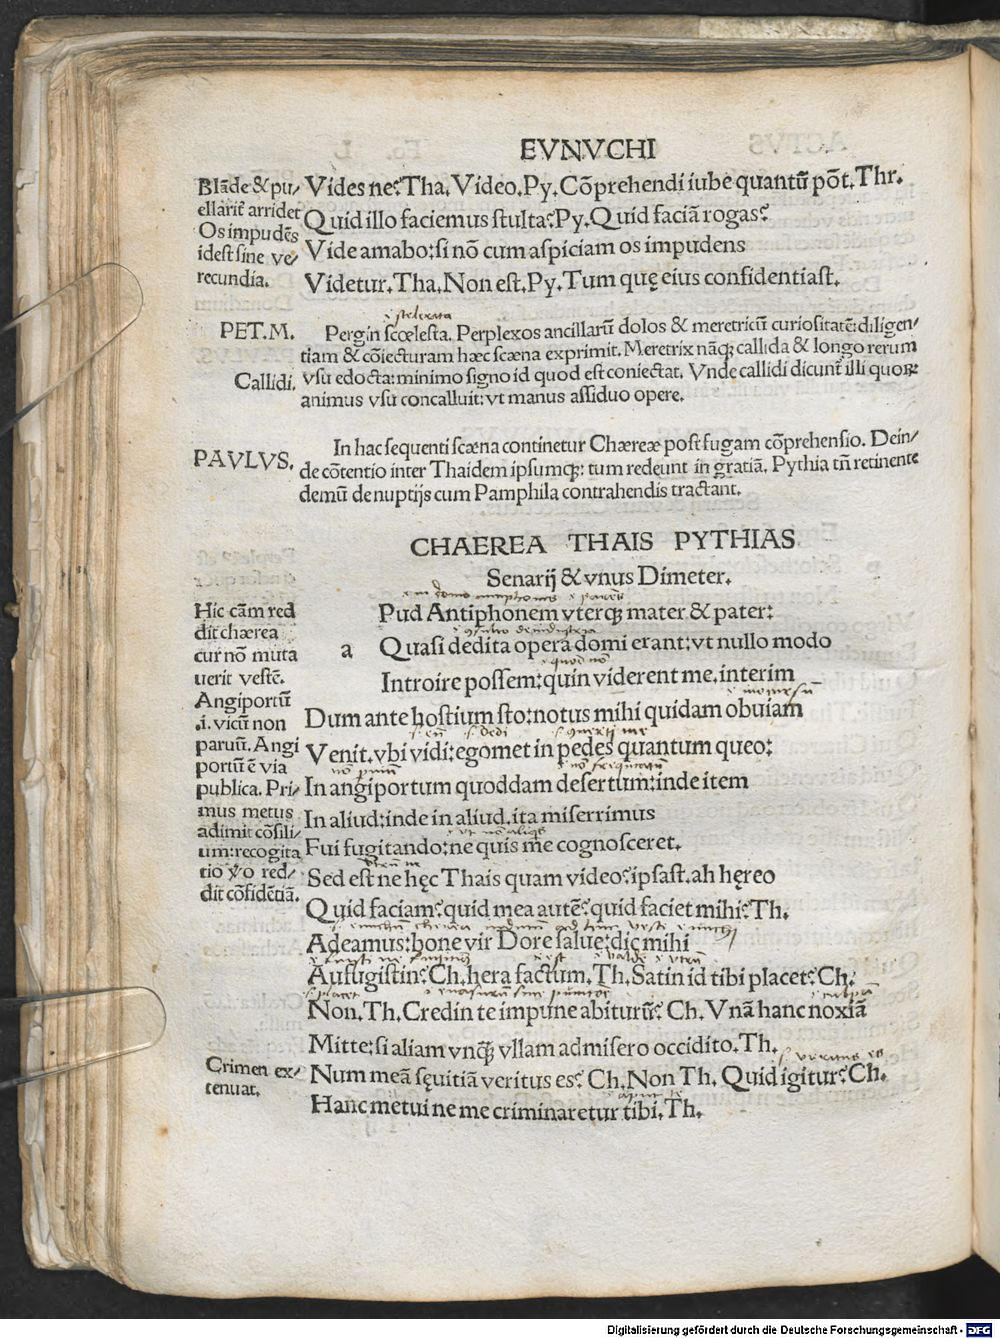 EVNVCHI
Vides ne?Tha.Video.Py.Cõprehendi iube quantũ põt.Thr.
Quid illo faciemus stulta?Py.Quid faciã rogas?
Vide amabo:si nõ cum aspiciam os impudens
Videtur.Tha.Non est.Py.Tum quę eius confidentiast.
Blãde & pu/
ellarit̃ arridet
Os impudẽs
idest sine ve/
recundia.
PET.M.
Pergin scœlesta. Perplexos ancillarũ dolos & meretricũ curiositatẽ:diligen/
tiam & cõiecturam hæc scæna exprimit. Meretrix nãq; callida & longo rerum
Callidi.
vsu edocta:minimo signo id quod est coniectat. Vnde callidi dicunt̃ illi quoꝝ
animus vsu concalluit:vt manus assiduo opere.
PAVLVS.
In hac sequenti scæna continetur Chæreæ post fugam cõprehensio. Dein/
de cõtentio inter Thaidem ipsumq;: tum redeunt in gratiã. Pythia tñ retinente
demũ de nuptijs cum Pamphila contrahendis tractant.
CHAEREA THAIS PYTHIAS
Senarij & vnus Dimeter.
Pud Antiphonem vterq; mater & pater:
a Quasi dedita opera domi erant:vt nullo modo
Introire possem:quin viderent me.interim
Dum ante hostium sto:notus mihi quidam obuiam
Venit.vbi vidi:egomet in pedes quantum queo:
In angiportum quoddam desertum:inde item
In aliud:inde in aliud.ita miserrimus
Fui fugitando:ne quis me cognosceret.
Sed est ne hęc Thais quam video?ipsast.ah hęreo
Quid faciam?quid mea autẽ?quid faciet mihi?Th.
Adeamus:bone vir Dore salue:dic mihi
Aufugistin?Ch.hera factum.Th.Satin id tibi placet?Ch.
Non.Th.Credin te impune abiturũ? Ch. Vnã hanc noxiã
Mitte:si aliam vnq̃ vllam admisero occidito.Th.
Num meã sęuitiã veritus es? Ch.Non Th. Quid igitur?Ch.
Hanc metui ne me criminaretur tibi.Th.
Hic cãm red
dit chærea
cur nõ muta
uerit vestẽ.
Angiportũ
.i. vicũ non
paruũ. Angi
portũ ē via
publica. Pri/
mus metus
adimit cõsili/
um:recogita
tio ṽo red/
dit cõfidẽtiã.
Crimen ex/
tenuat.
Digitalisierung gefördert durch die Deutsche Forschungsgemeinschaft - DFG